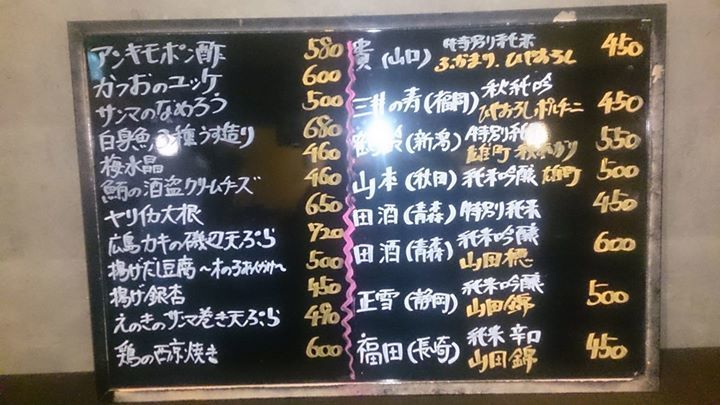 アンキモポン酢 580
かつおのユッケ 600
サンマのなめろう 500
白身魚 種うす造り 680
梅水晶 460
鮪の酒盗クリームチーズ 460
ヤリイカ大根 650
広島カキの磯辺天ぷら 720
揚げだし豆腐〜木の子あんかけ〜 500
揚げ銀杏 450
えのきのサンマ巻き天ぷら 490
鶏の西京焼き 600
貴(山口) 特別純米 450
ふかまり ひやおろし
三井の寿(福岡) 秋純吟 450
ひやおろしポルチーニ
鶴齢(新潟) 特別純米 550
雄町
山本(秋田) 純米吟醸 雄町 500
田酒(青森) 特別純米 450
田酒(青森) 純米吟醸 600
山田穂
正雪(静岡) 純米吟醸 500
山田錦
福田(長崎) 純米 辛口 450
山田錦